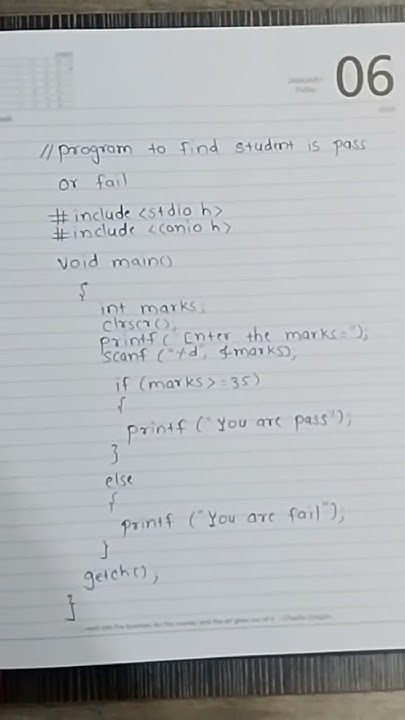 06
//program to find student is pass
or fail
# include <stdio h>
# include <conio h>
void main()
{
int marks;
clrscr();
printf("Enter the marks=");
scanf ("%d", &marks);
if (marks>=35)
{
printf ("You are pass");
}
else
{
printf ("You are fail");
}
getch();
}